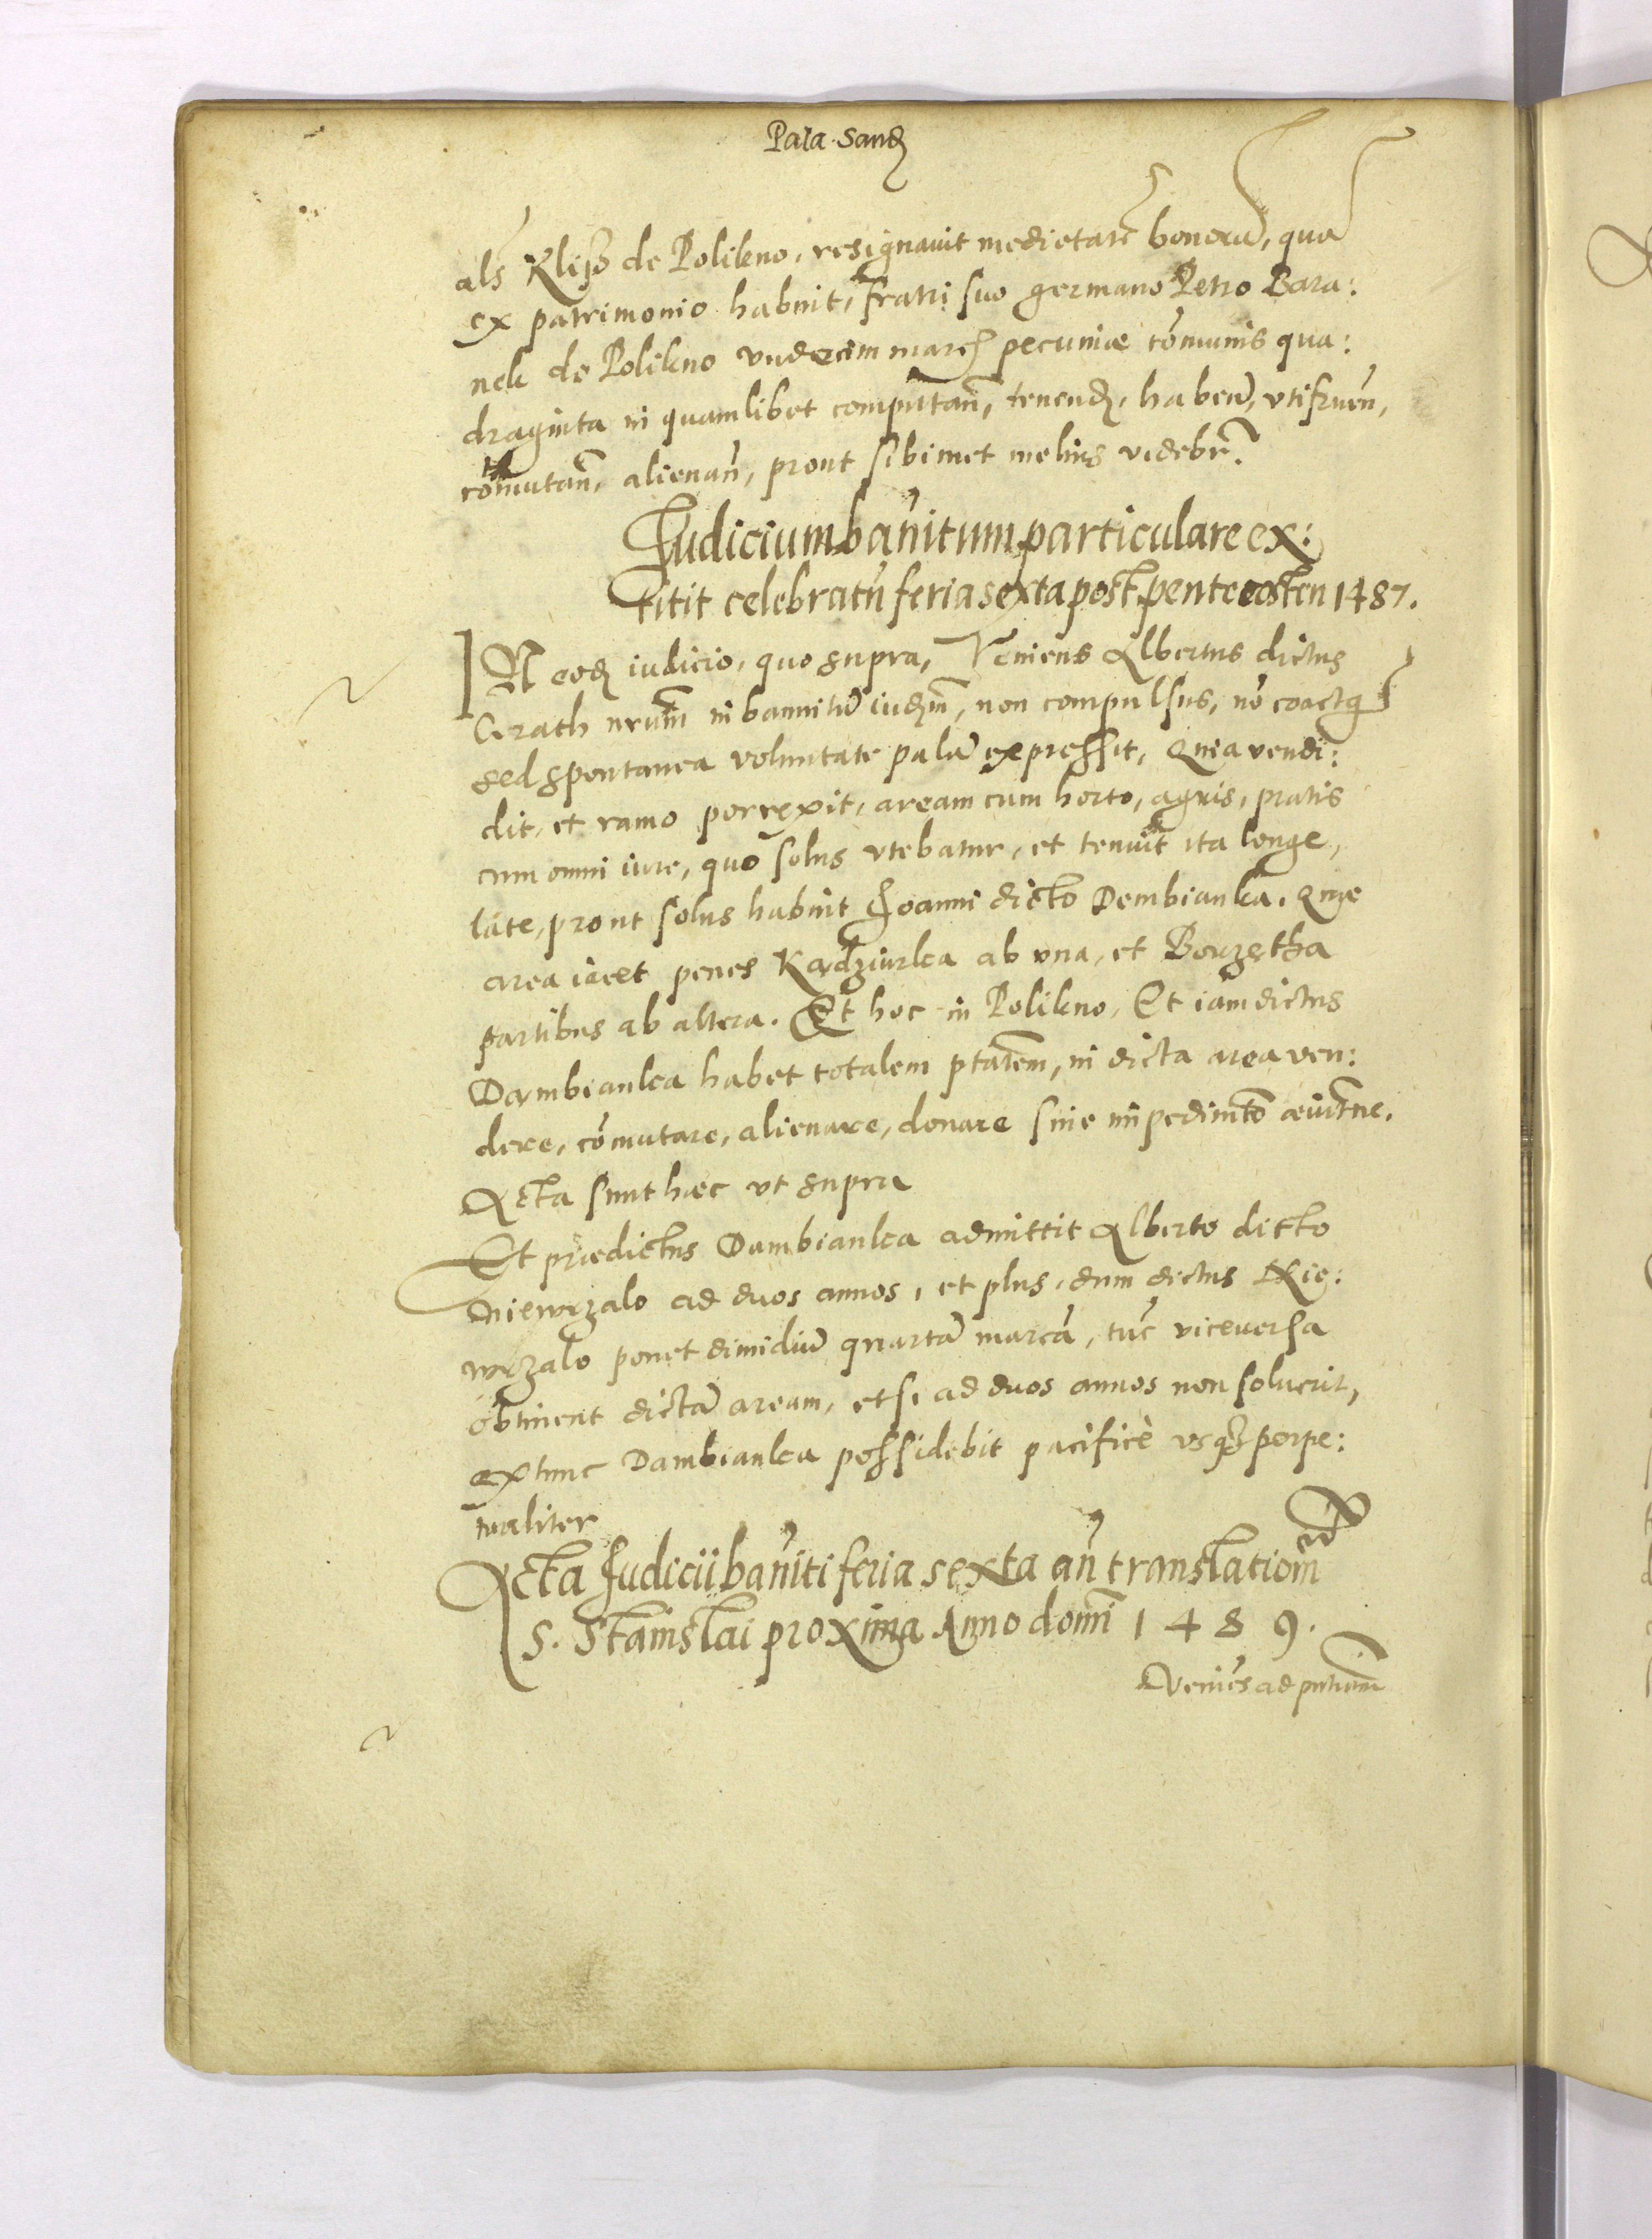 Pala. Sand
als Klisz de Polikno, resignauit medietatē bonorū, qua
ex patrimonio habuit, fratri suo germano Petro Bara:
nek de Polikno vndecim marc pecuniæ cōmunis qua:
draginta in quamlibet computan, tenend, habeñ, vtifruen,
cōmutan, alienan, prout sibimet melius videbr.
Iudicium bañitum particulare ex:
titit celebratū feria sexta post pentecosten 1487.
IN eod iudicio, quo supra, Veniens Albertus dictus
Grath nrum in bannitū iudm, non compulsus, nō coactq
sed spontanea voluntate palā expressit, Quia vendi:
dit, et ramo porrexit, aream cum horto, agris, pratis
cum omni iure, quo solus vtebatur, et tenuit ita longe,
late, prout solus habuit Joanni dicto Dembianka. Quæ
area iacet penes Kądziurka ab vna, et Bouzętha
partibus ab altera. Et hoc in Polikno, Et iam dictus
Dambianka habet totalem ptatem, in dicta area ven:
dere, cōmutare, alienare, donare sine impedimto æuiterne.
Acta sunt hæc vt supra
Et prædictus Dambianka admittit Alberto dicto
Niewrzalo ad duos annos, et plus, dum dictus Nie:
wrzalo ponet dimidiū quartā marcā, tūc viceuersa
obtinent dictā aream, et si ad duos annos non soluerit,
extunc Dambianka possidebit pacificè vsq perpe:
tualiter
Acta Judicii bañiti feria sexta añ translationem
S. Stanislai proxima Anno domi 1489.
Veniēs ad pntiam